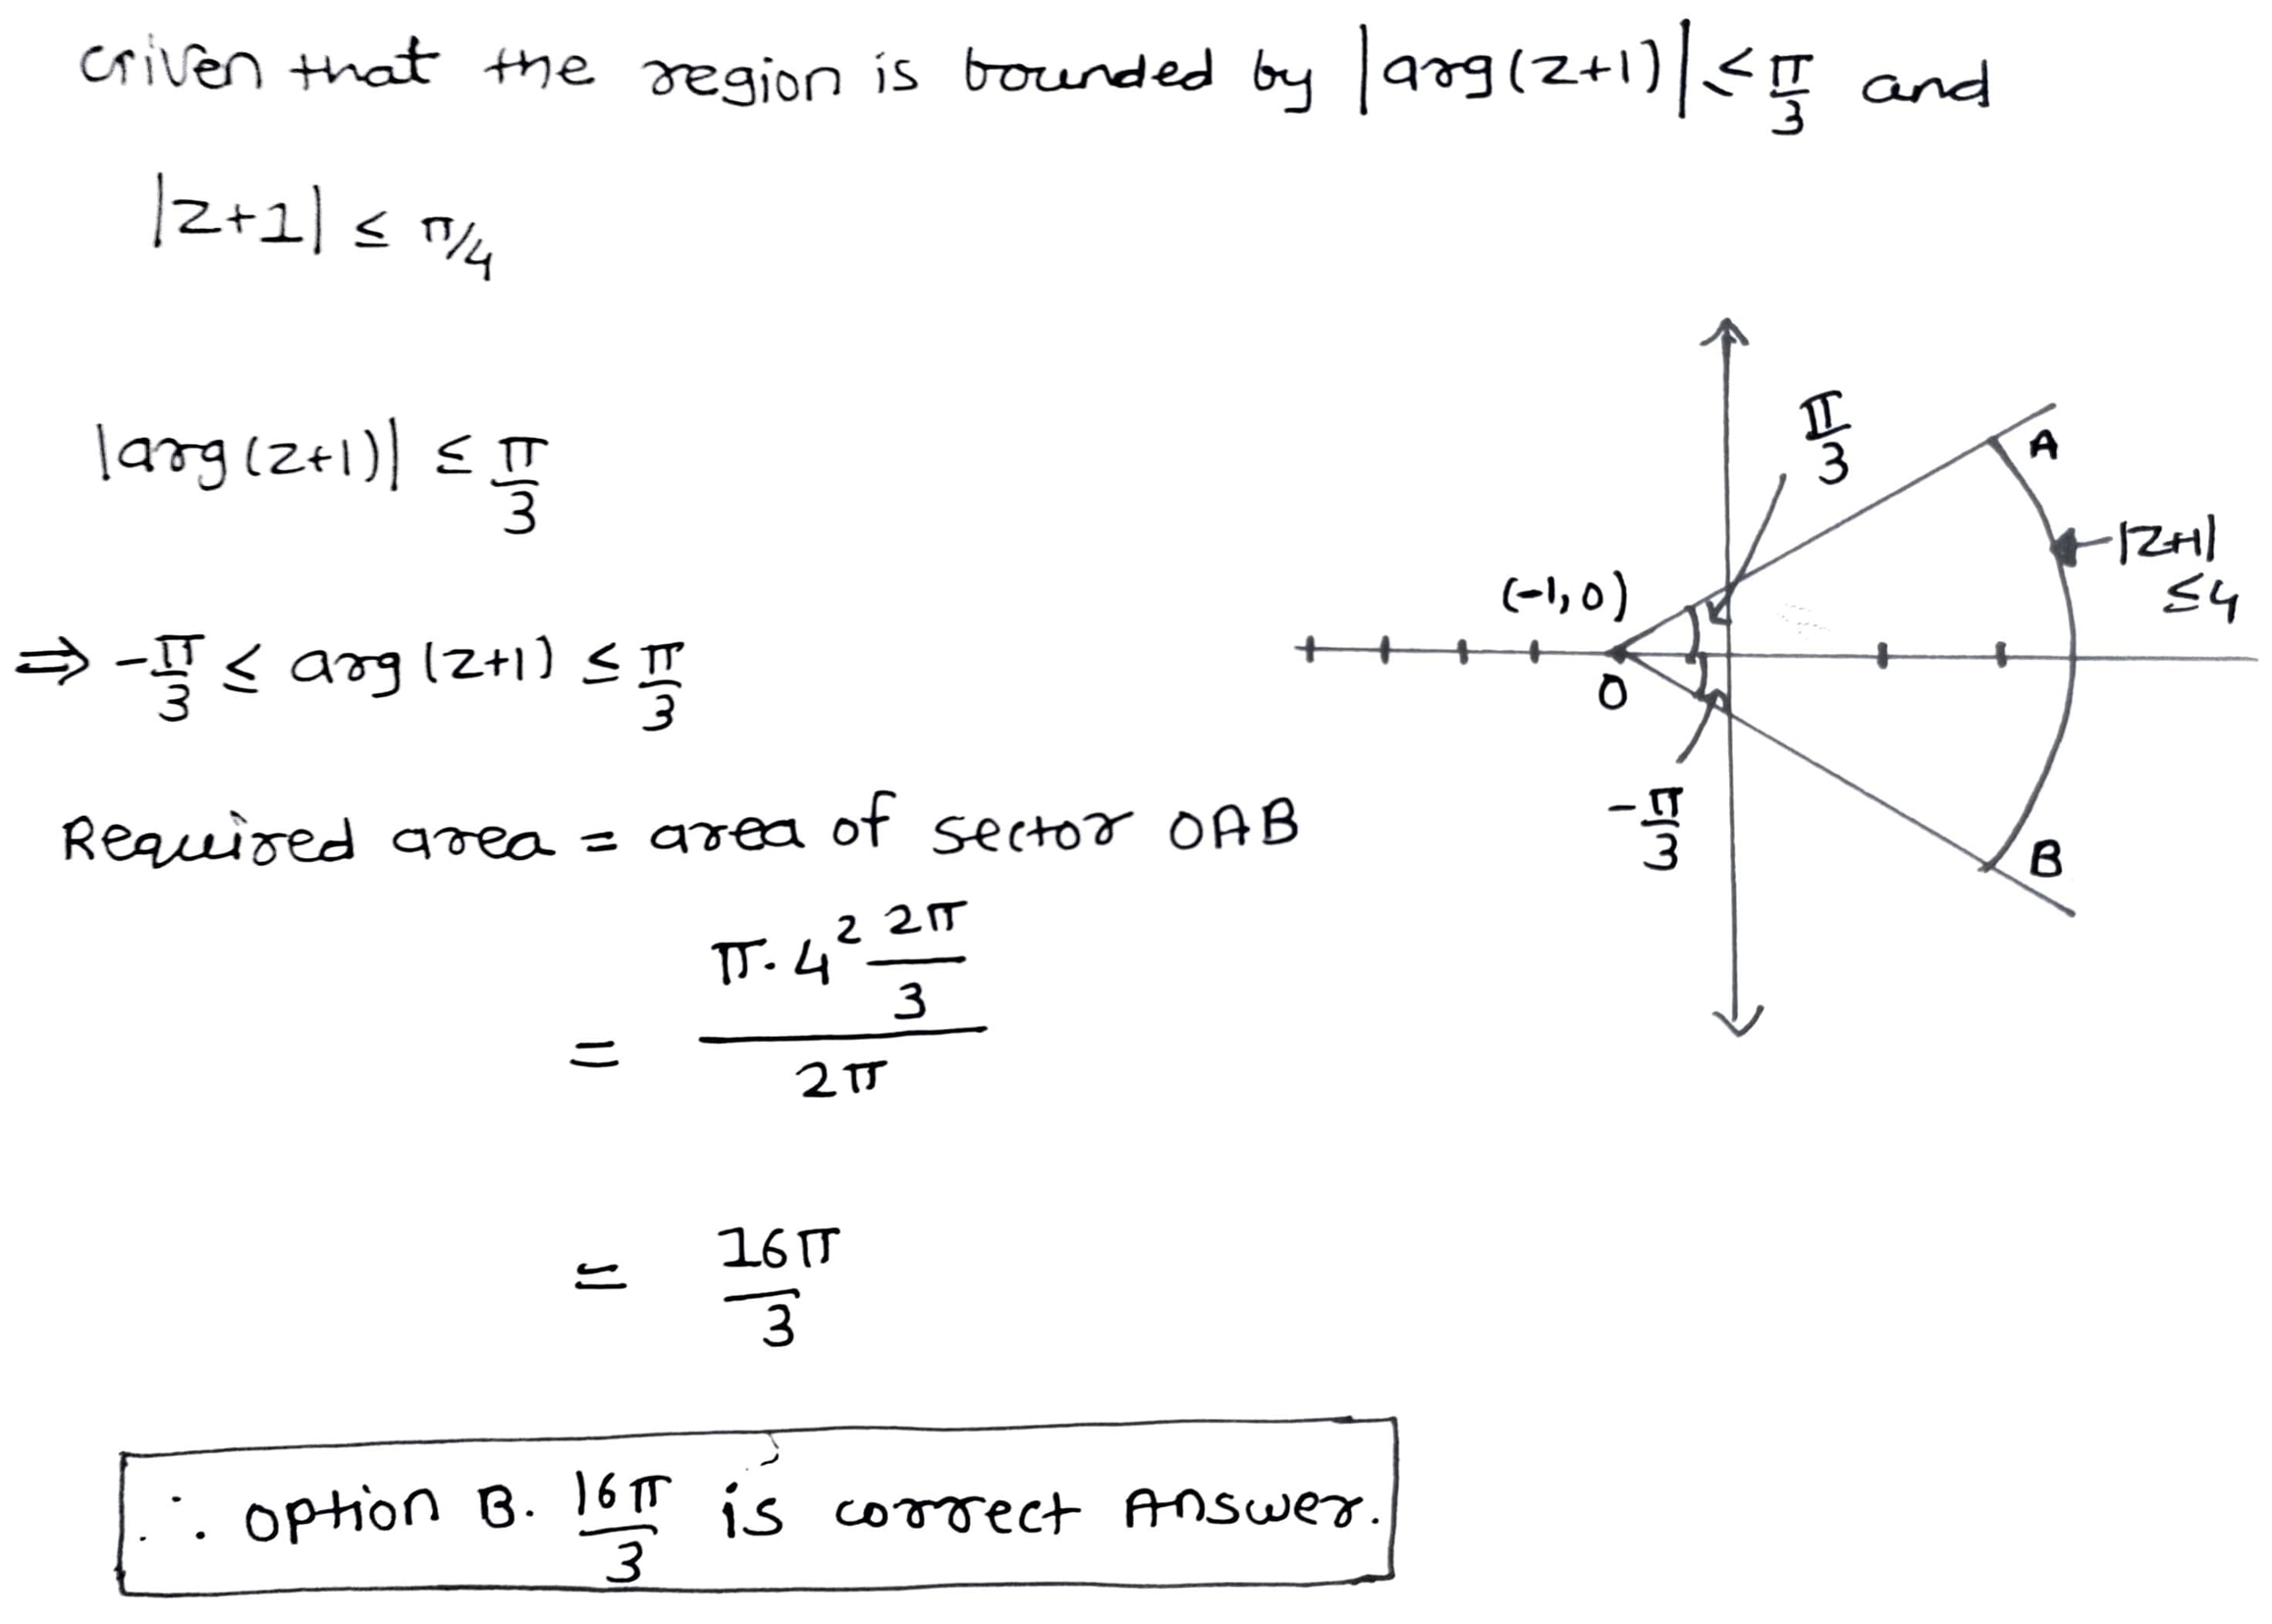 Given that the region is bounded by |arg(z+1)| ≤ π/3 and
|z+1| ≤ π/4
|arg(z+1)| ≤ π/3
⇒ -π/3 ≤ arg(z+1) ≤ π/3
π/3
A
|z+1| ≤ 4
(-1,0)
O
-π/3
B
Required area = area of sector OAB
= (π.4² 2π/3)/2π
= 16π/3
∴ option B. 16π/3 is correct Answer.